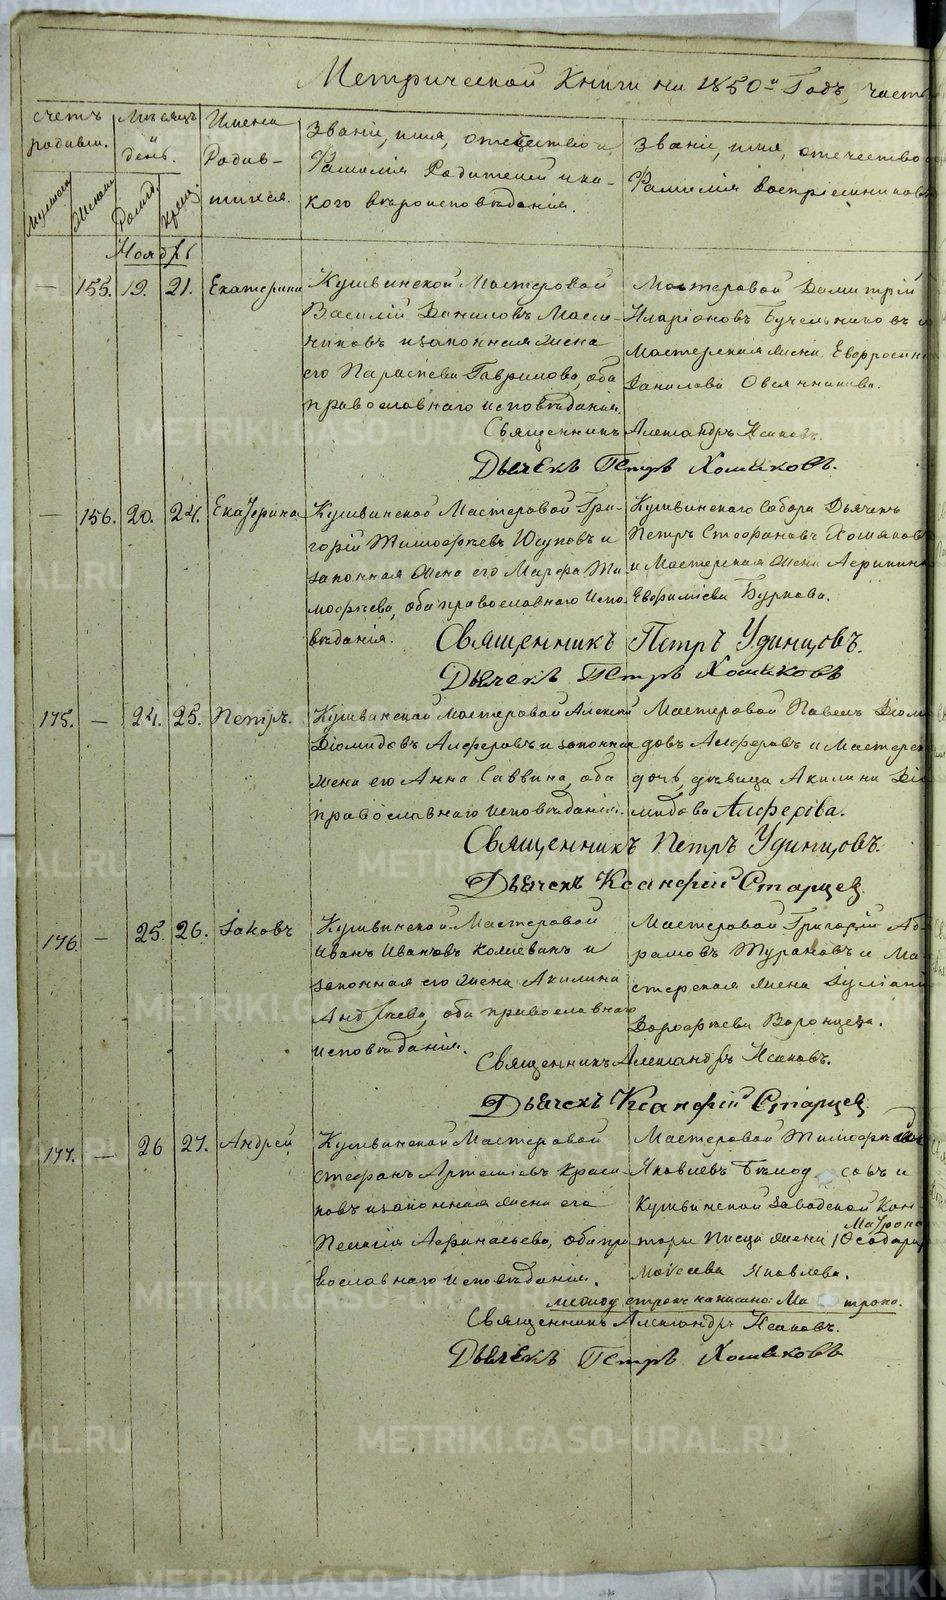 Метрической Книги на 1850й Годъ, часть
Счетъ родивш.
Мѣсяцъ и день.
Имена Родив-
шихся.
Званіе, имя, отчество и
Фамилія Родителей и ка-
кого вѣроисповѣданія.
Званіе, имя, отчество
Фамилія воспріемниковъ
Мужск.
Женск.
Рожд.
Крещ.
Ноябрь
— 155. 19. 21. Екатерина
Кушвинской Мастеровой
Василій Даниловъ
и законная жена
его Параскева Гаврилова, оба
православнаго исповѣданія.
Мастеровой Димитрій
Иларіоновъ
Мастерская жена Евфросин
Данилова Овсянникова.
Священникъ Александръ Исаковъ.
Дьячекъ Петръ Хомяковъ.
— 156. 20. 24. Екатерина
Кушвинской Мастеровой Гри-
горій Тимофѣевъ Юсуповъ и
законная жена его Марфа Ти-
мофѣева, оба православнаго испо-
вѣданія.
Кушвинскаго Собора Дьячекъ
Петръ Стефановъ Хомяковъ
и Мастерская жена
Евфиміева Буркова.
Священникъ Петръ Удинцовъ.
Дьячекъ Петръ Хомяковъ
175. — 24. 25. Петръ.
Кушвинской мастеровой Алексій
Діомидовъ Алферовъ и законная
жена его Анна Саввина, оба
православнаго исповѣданія.
Мастеровой Павелъ Діоми
довъ Алферовъ и Мастерск
дочь, дѣвица Акилина Діо
мидова Алферова.
Священникъ Петръ Удинцовъ.
Дьячекъ Ксанфій Старцев
176. — 25. 26. Іаковъ
Кушвинской Мастеровой
Иванъ Ивановъ и
законная его жена Акилина
Андреева, оба православнаго
исповѣданія.
Мастеровой Григорій Аб-
рамовъ Турановъ и Ма-
стерская жена Іуліані
Дорофѣева Воронцева.
Священникъ Александръ Исаковъ.
Дьячекъ Ксанфій Старцев
177. — 26 27. Андрей
Кушвинской Мастеровой
Стефанъ Артеміевъ
и законная жена его
Пелагія Афанасьева, оба пра
вославнаго исповѣданія.
Мастеровой Тимофѣй
Яковлевъ и
Кушвинской Заводской Кон
Матрона
торы Писца жена
Моисеева Яковлева.
между строкъ написано: Матрона.
Священникъ Александръ Исаковъ.
Дьячекъ Петръ Хомяковъ
METRIKI.GASO-URAL.RU